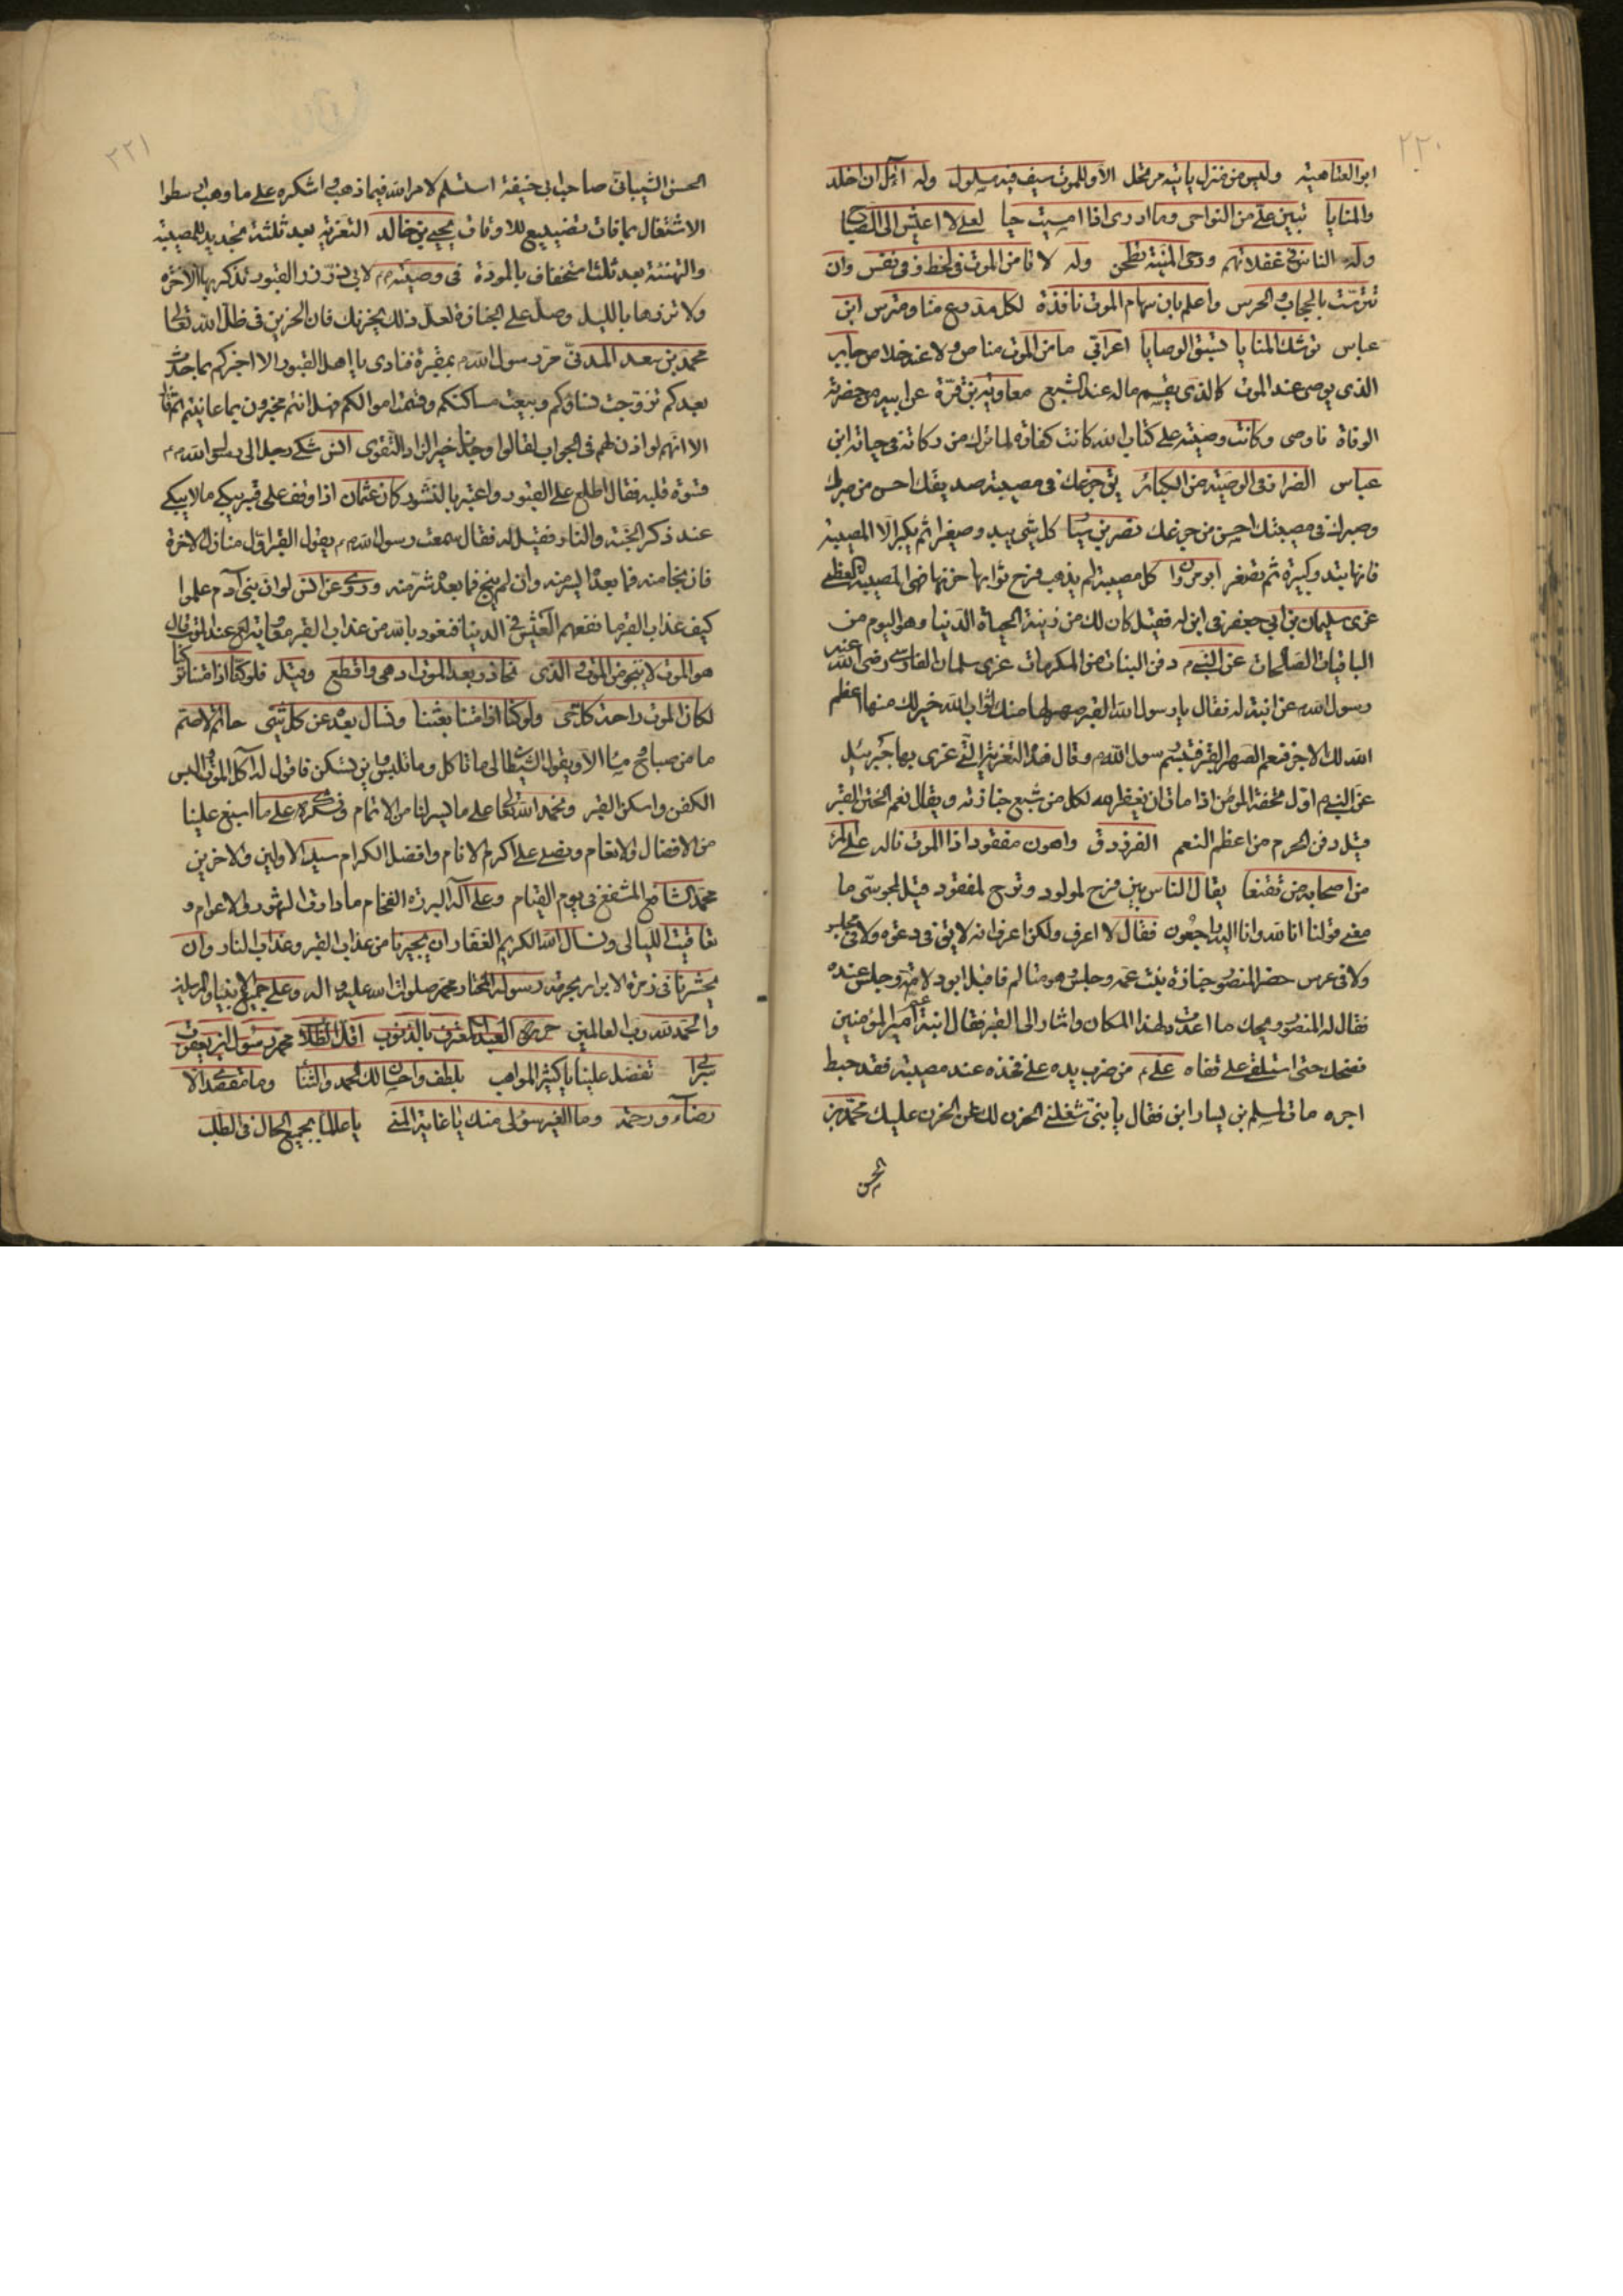 ٢٢٠
ابو العتاهية وليس من منزل يأتيه مرتحل الا وللموت سيف فيه مسلول وله آمل ان اخلد
والمنايا تبين علي من النواحى وما ادرى اذا امسيت حيا لعلى لا اعيش الى الصباح
وله الناس في غفلاتهم ورحى المنية تطحن وله لا تأمن الموت في لحظ وفى نفس وان
تترست بالحجاب والحرس واعلم بان سهام الموت نافذة لكل مدرع منا ومترس ابن
عباس توشك المنايا تسبق الوصايا اعرابي ما من الموت مناص ولا عنه خلاص جابر
الذى يوصى عند الموت كالذى يقسم ماله عند الشبع معاوية بن قرة عن ابيه من حضرته
الوفاة فاوصى وكانت وصيته على كتاب الله كانت كفارة لما ترك من زكاته في حياته ابن
عباس الضرار في الوصية من الكبائر جزعك في مصيبة صديقك احسن من صبرك
وصبرك في مصيبتك احسن من جزعك نصر بن سيار كل شئ يبدو صغيرا ثم يكبر الا المصيبة
فانها تبدو كبيرة ثم تصغر كل مصيبة لم يذهب فرح ثوابها حزنها فهي المصيبة العظمى
عزى سليمان بن ابي جعفر في ابن له فقيل كان لك من زينة الحياة الدنيا وهو اليوم من
الباقيات الصالحات عن النبي م دفن البنات من المكرمات عزى سلمان الفارسي رضى الله عنه
رسول الله عن ابنة له فقال يا رسول الله القبر صهر لها منك ثواب الله خير لك منها اعظم
الله لك الاجر فنعم الصهر القبر فتبسم رسول الله م وقال هذه التعزية التى عزى بها جبرئيل
عن النبي م اول تحفة المؤمن اذا مات ان يغفر الله لكل من شيع جنازته ويقال نعم الختن القبر
قيل دفن الحرم من اعظم النعم الفرزدق واهون مفقود اذا الموت ناله على المرء
من اصحابه من تقنعا يقال الناس بين فرح لمولود وترح لمفقود قيل لمجوسي ما
معنى قولنا انا لله وانا اليه راجعون فقال لا اعرف ولكن اعرف انه لا يق في دعوة ولا في مجلس
ولا في عرس حضر المنصور جنازة بنت عمه وجلس وهو متألم فاقبل ابو دلامة وجلس عنده
فقال له المنصور ويحك ما اعددت لهذا المكان واشار الى القبر فقال ابنة عم امير المؤمنين
فضحك حتى استلقى على قفاه علي م من ضرب يده على فخذه عند مصيبة فقد حبط
اجره مات لمسلم بن يسار ابن فقال يا بني شغلني الحزن لك عن الحزن عليك محمد بن
الحسن
٢٢١
الحسن الشيباني صاحب ابي حنيفة استسلم لامر الله فيما ذهب واشكره على ما وهب
الاشتغال بما فات تضييع للاوقات يحيى بن خالد التعزية بعد ثلثة تجديد للمصيبة
والتهنئة بعد ثلث استخفاف بالمودة في وصيته م لابي ذر زر القبور تذكر بها الآخرة
ولا تزرها بالليل وصل على الجنازة لعل ذلك يحزنك فان الحزين في ظل الله تعالى
محمد بن سعد المدني مر رسول الله م بمقبرة فنادى يا اهل القبور الا اخبركم بما حدث
بعدكم تزوجت نساؤكم وبيعت مساكنكم وقسمت اموالكم فهل انتم مخبرون بما عاينتم ثم قال
الا انهم لو اذن لهم في الجواب لقالوا وجدنا خير الزاد التقوى انس شكى رجل الى رسول الله م
قسوة قلبه فقال اطلع على القبور واعتبر بالنشور كان عثمان اذا وقف على قبر يبكى ما لا يبكى
عند ذكر الجنة والنار فقيل له فقال سمعت رسول الله م يقول القبر اول منازل الاخرة
فان نجا منه فما بعده ايسر منه وان لم ينج فما بعده شر منه وروى عن انس لو ان بني آدم علموا
كيف عذاب القبر ما نفعهم العيش في الدنيا فنعوذ بالله من عذاب القبر معاوية عند الموت قال
هو الموت لا منجى من الموت والذى نحاذر بعد الموت ادهى وافظع وقيل فلو كنا اذا متنا تركنا
لكان الموت راحة كل حى ولو كنا اذا متنا بعثنا ونسأل بعده عن كل شئ حاتم الاصم
ما من صباح ومساء الا ويقول الشيطان لى ما تأكل وما تلبس واين تسكن فاقول له آكل الموت والبس
الكفن واسكن القبر ونحمد الله تعالى على ما يسر لنا من الاتمام ونشكره على ما اسبغ علينا
من الافضال والانعام ونصلى على اكرم الانام وافضل الكرام سيد الاولين والاخرين
محمد الشافع المشفع في يوم القيام وعلى آله البررة الفخام ما دارت الشهور والاعوام و
تعاقبت الليالى ونسأل الله الكريم الغفار ان يجيرنا من عذاب القبر وعذاب النار وان
يحشرنا في زمرة الابرار بحرمة رسوله المختار محمد صلوات الله عليه وآله وعلى جميع الانبياء والمرسلين
والحمد لله رب العالمين حرره العبد المعترف بالذنوب اقل الطلاب محمد رسول بن يعقوب
تفضل علينا يا كثير المواهب بلطف واحسان لك الحمد والثنا وما مقصدى الا
رضاء ورحمة وما الغير سؤلى منك يا غاية المنى يا عالما بجميع الحال في الطلب